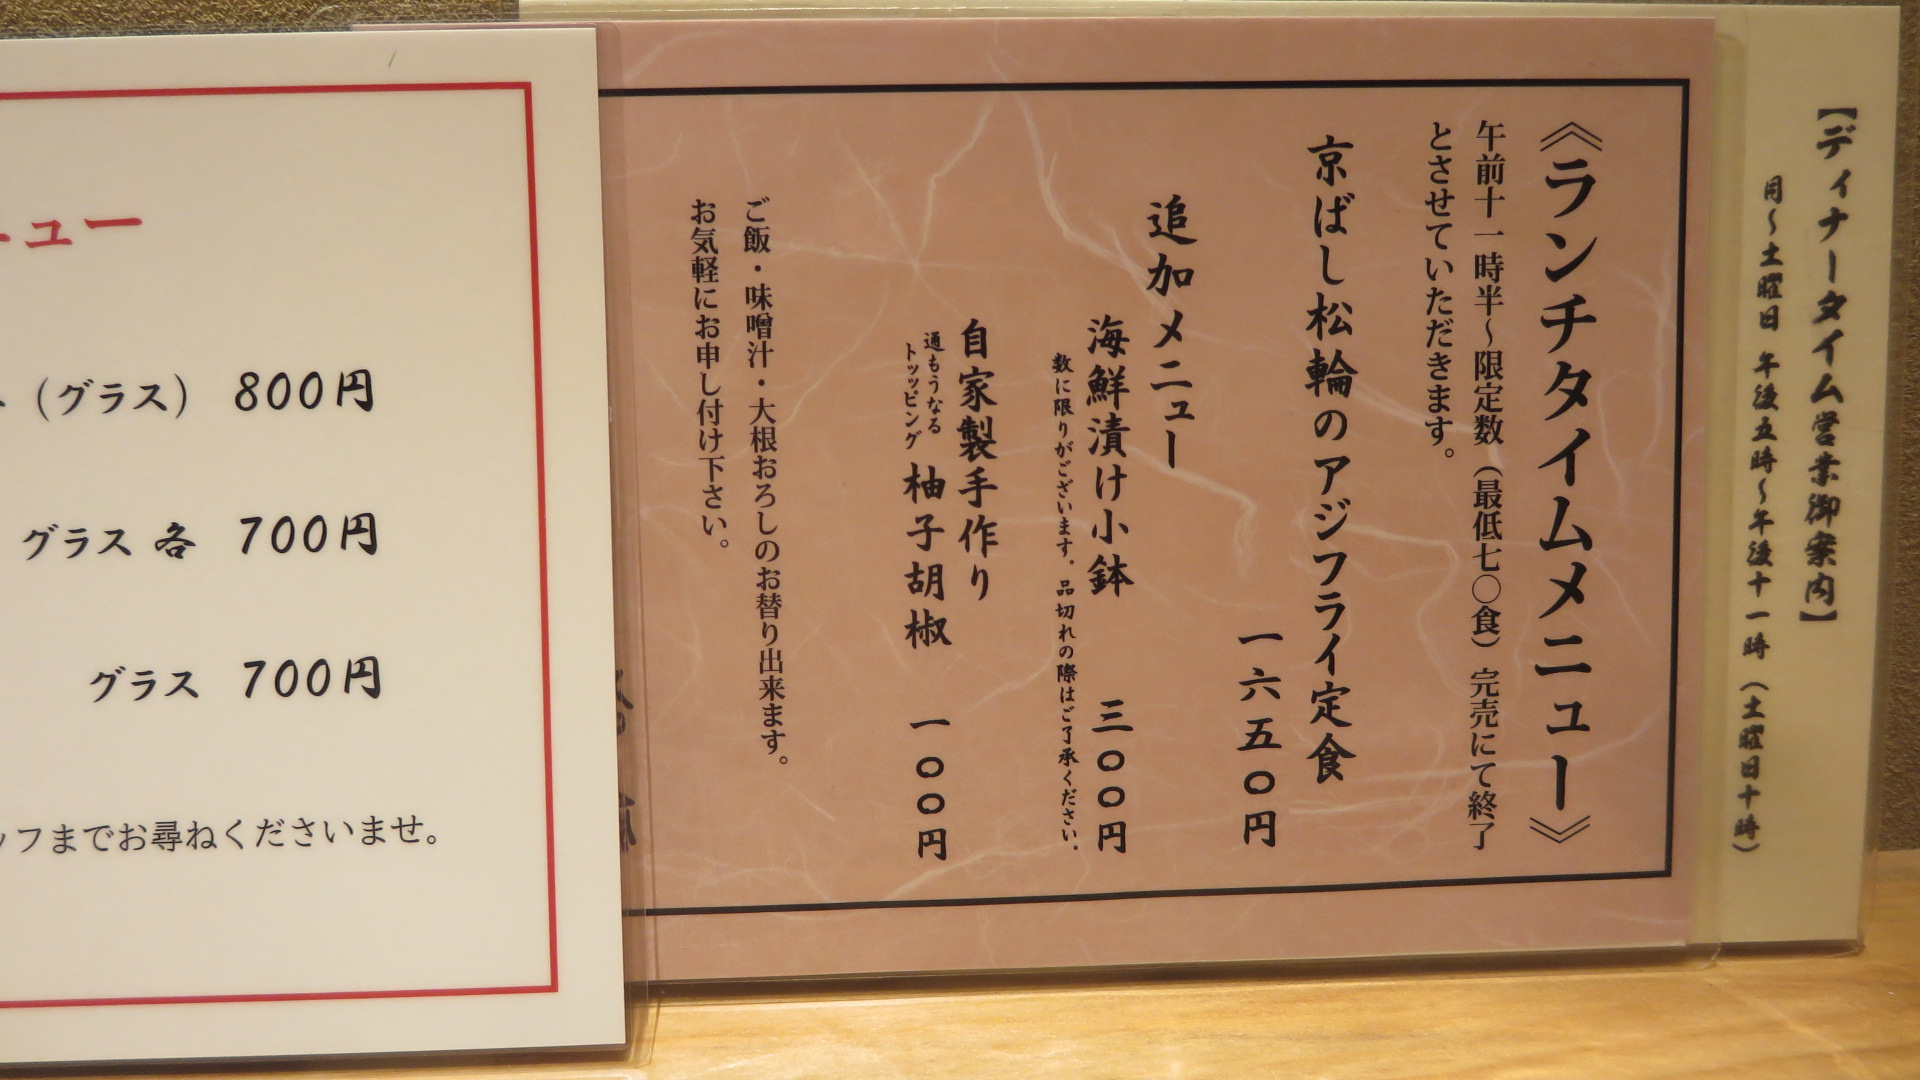 【ディナータイム営業御案内】
月～土曜日 午後五時～午後十一時（土曜日十時）
《ランチタイムメニュー》
午前十一時半～限定数（最低七〇食）完売にて終了
とさせていただきます。
京ばし松輪のアジフライ定食
一六五〇円
追加メニュー
海鮮漬け小鉢 三〇〇円
数に限りがございます。品切れの際はご了承ください。
自家製手作り
通もうなる
トッッピング
柚子胡椒 一〇〇円
ご飯・味噌汁・大根おろしのお替り出来ます。
お気軽にお申し付け下さい。
ニュー
（グラス） 800円
グラス 各 700円
グラス 700円
ッフまでお尋ねくださいませ。